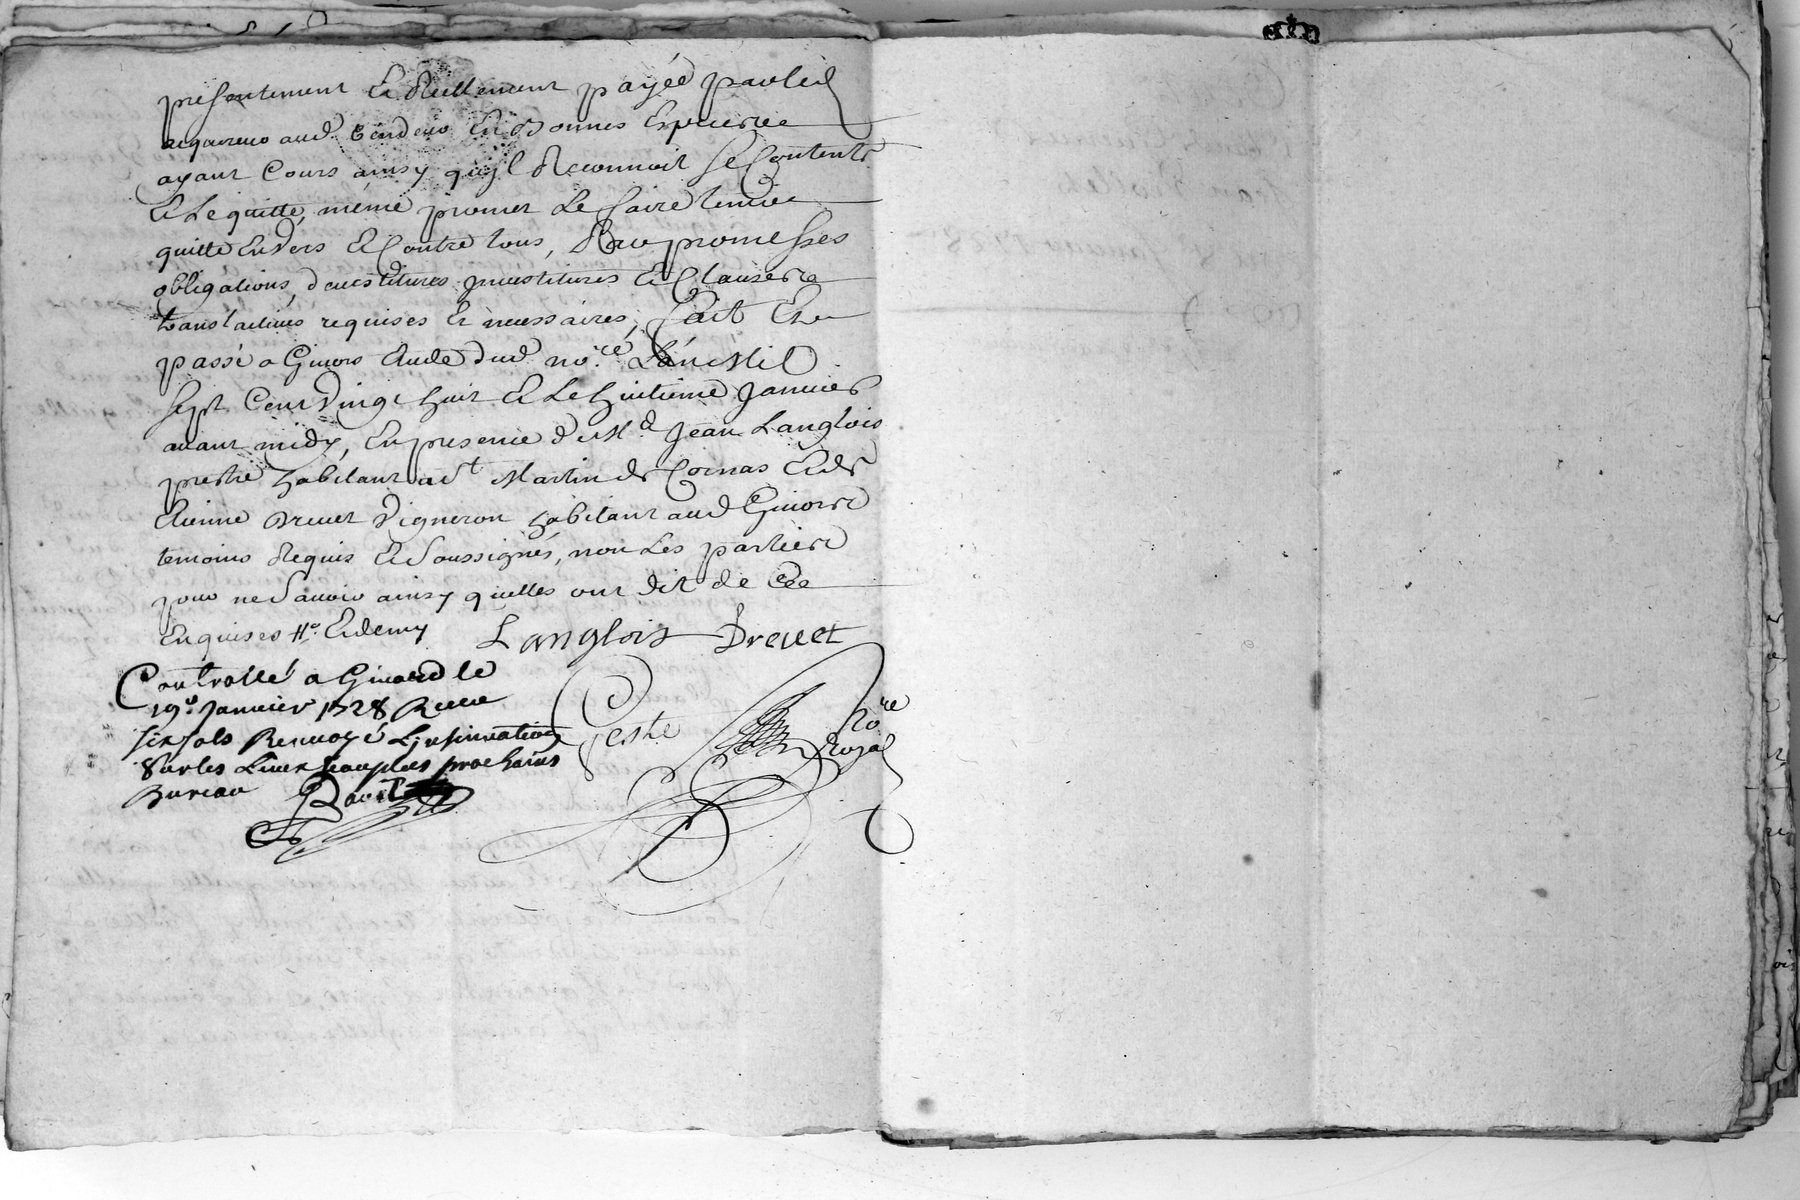 presentement et réellement payée par led
aquereur aud. vendeur en bonnes especes
ayant cours ainsy qu'jl reconnoit se contente
et le quitte, même promet le faire tenir
quitte envers et contre tous, par promesses
obligations, devestitures jnvestitures et clauses
translatives requises et necessaires, fait et
passé a Givors etude dud no.re L'an Mil
sept cent vingt huit et le huitieme janvier
avant midy, en presence de M.e Jean Langlois
prestre habitant a St Martin de Cornas et de
Etienne Drevet vigneron habitant aud Givors
temoins requis et soussignés, non les parties
pour ne sauoir ainsy quelles ont dit de ce
enquises
Langlois Drevet
Controllé a Givord le
19e. Janvier 1728 Receu
six sols Renuoyé L'jnsinuation
sur les Lieux au plus prochains
Bureau
No.re
Royal